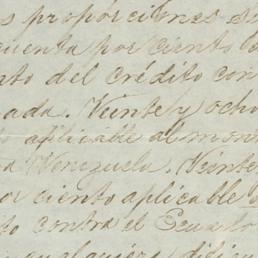 s proporciones si
cuenta por ciento
nto del crédito con
ada. Veinte y ocho
aplicable al mon
a Venezuela. Veinte
por ciento aplicable
ito contra el Ecuado